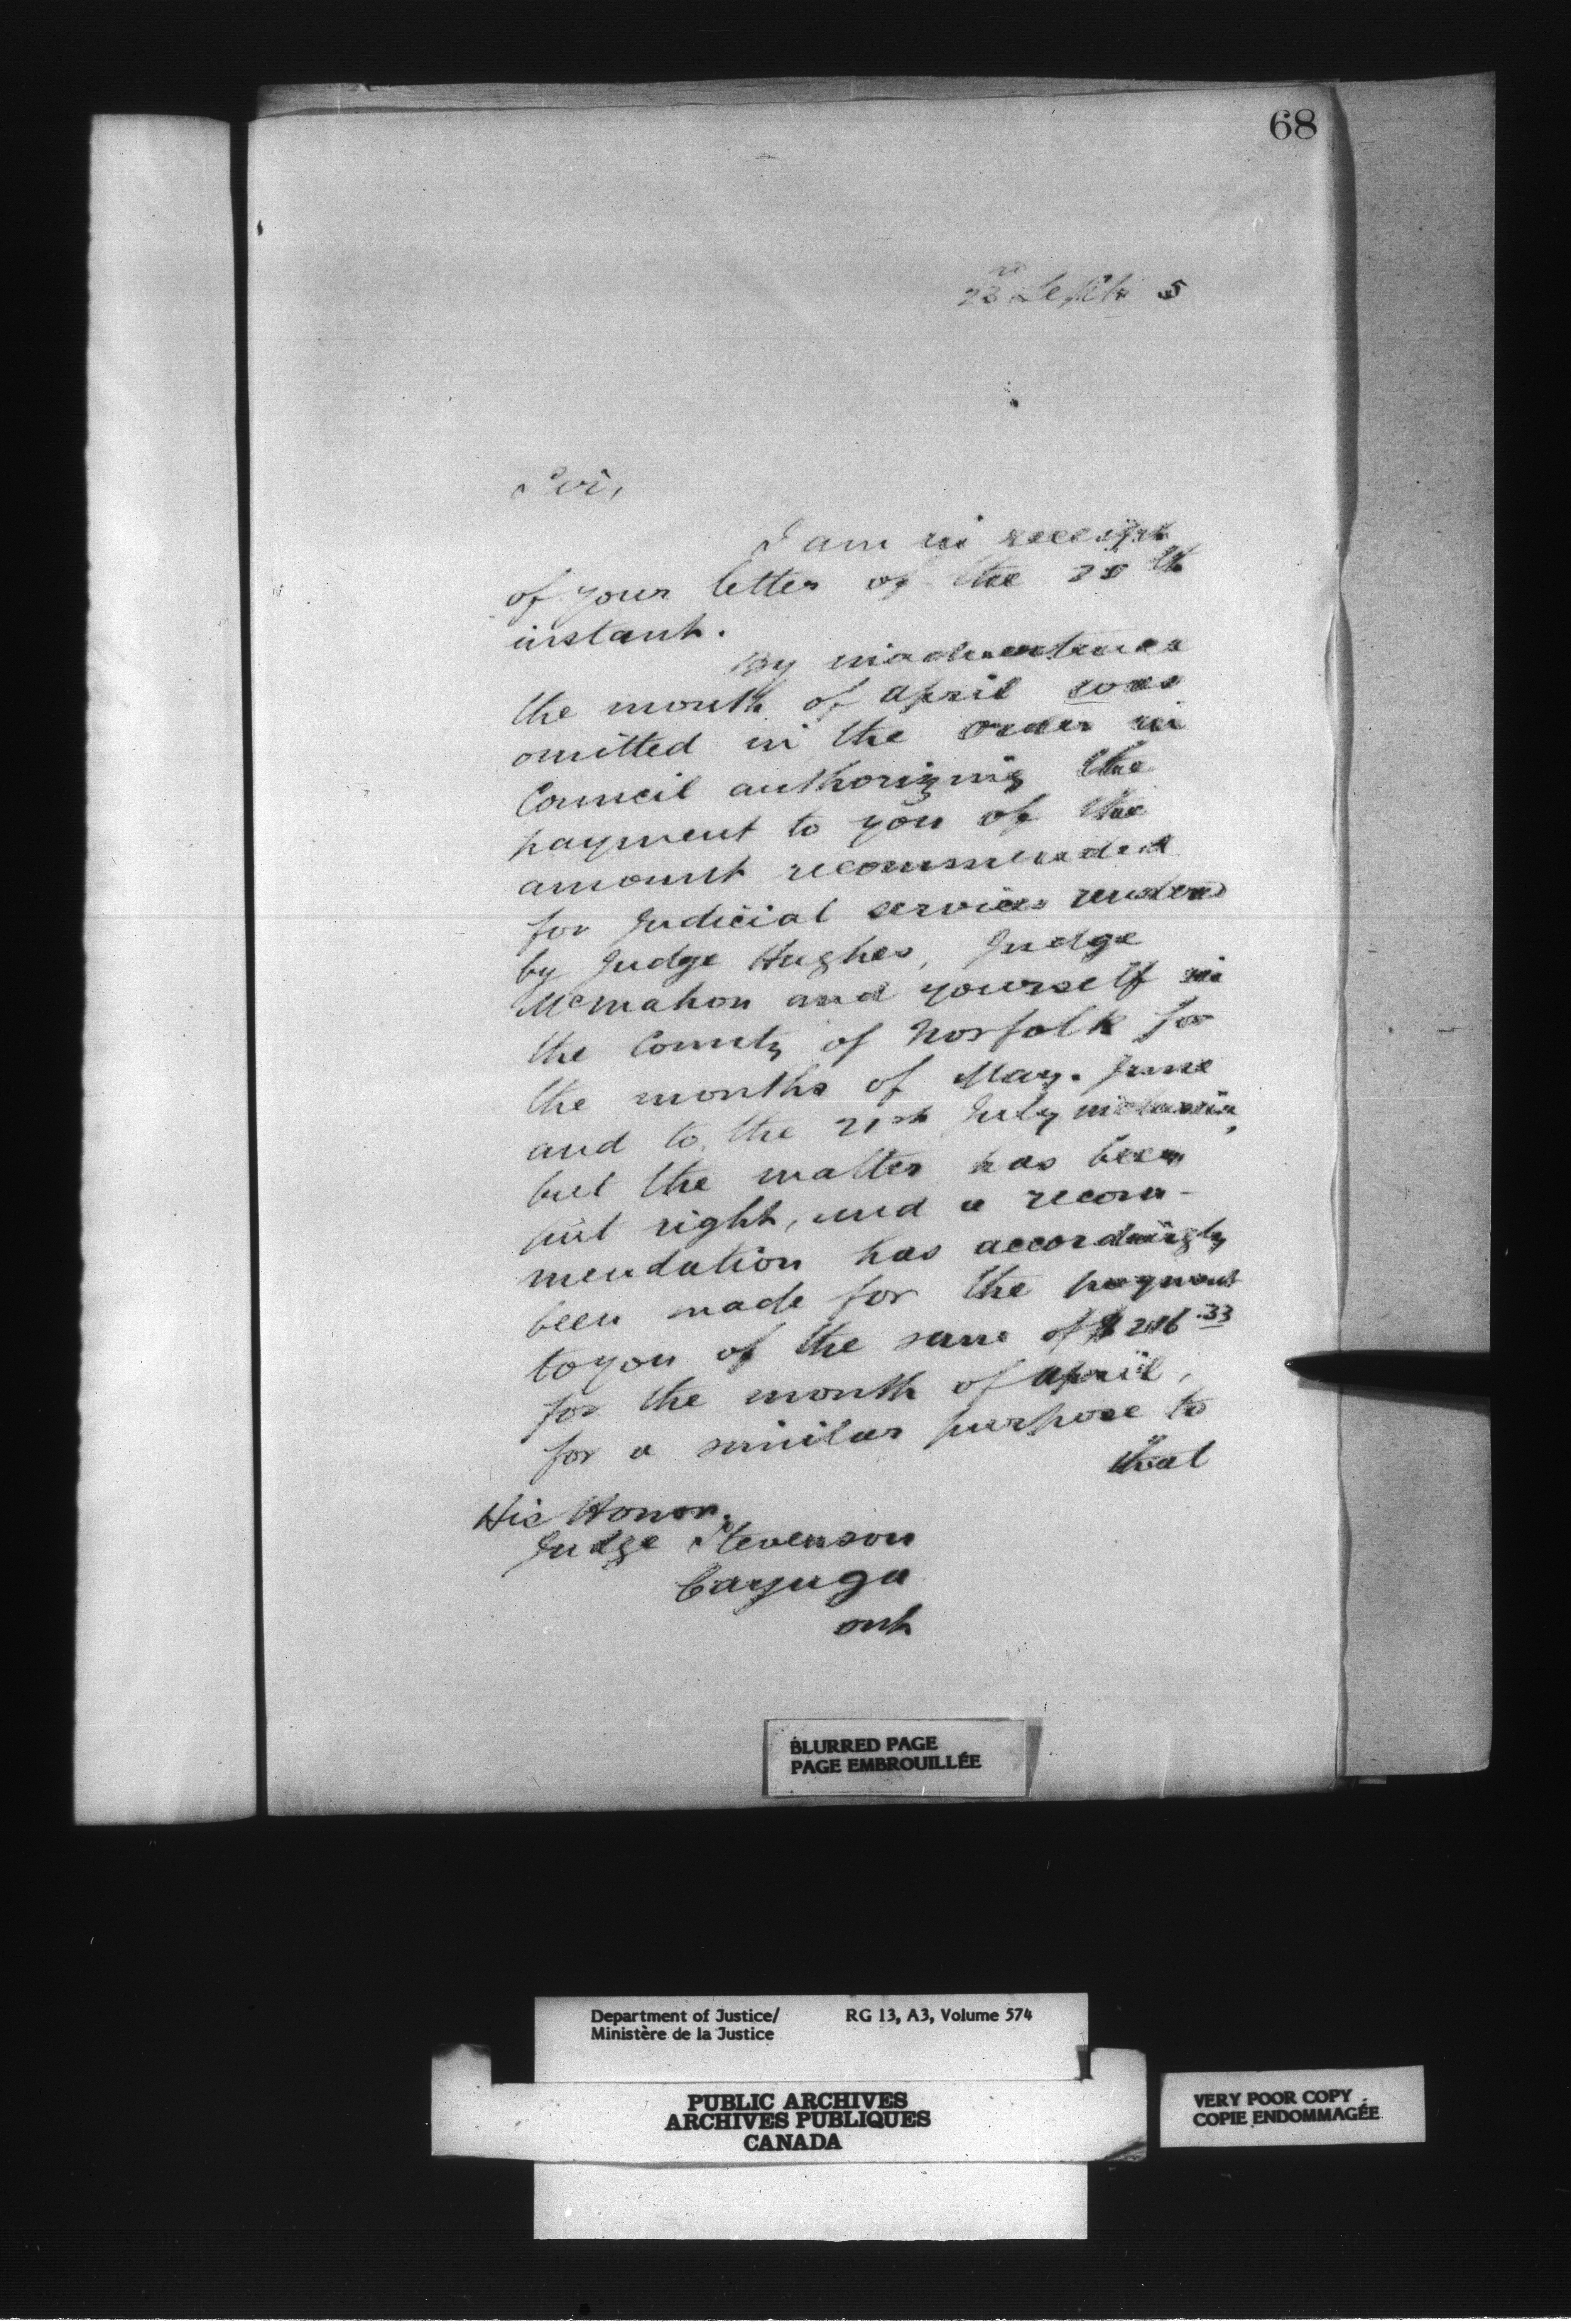 68
23rd Septr 5
Sir,
I am in receipt
of your letter of the th
instant.
By inadvertence
the month of April was
omitted in the Order in
Council authorizing the
payment to you of the
amount recommended
for Judicial services rendered
by Judge Hughes, Judge
McMahon and yourself in
the County of Norfolk for
the months of May. June
and to the 21st July inclusive,
but the matter has been
put right, and a recom-
mendation has accordingly
been made for the payment
to you of the sum of $ .33
for the month of April,
for a similar purpose to
that
His Honor.
Judge Stevenson
Cayuga
Ont
BLURRED PAGE
PAGE EMBROUILLÉE
Department of Justice/ RG 13, A3, Volume 574
Ministère de la Justice
PUBLIC ARCHIVES
ARCHIVES PUBLIQUES
CANADA
VERY POOR COPY
COPIE ENDOMMAGÉE